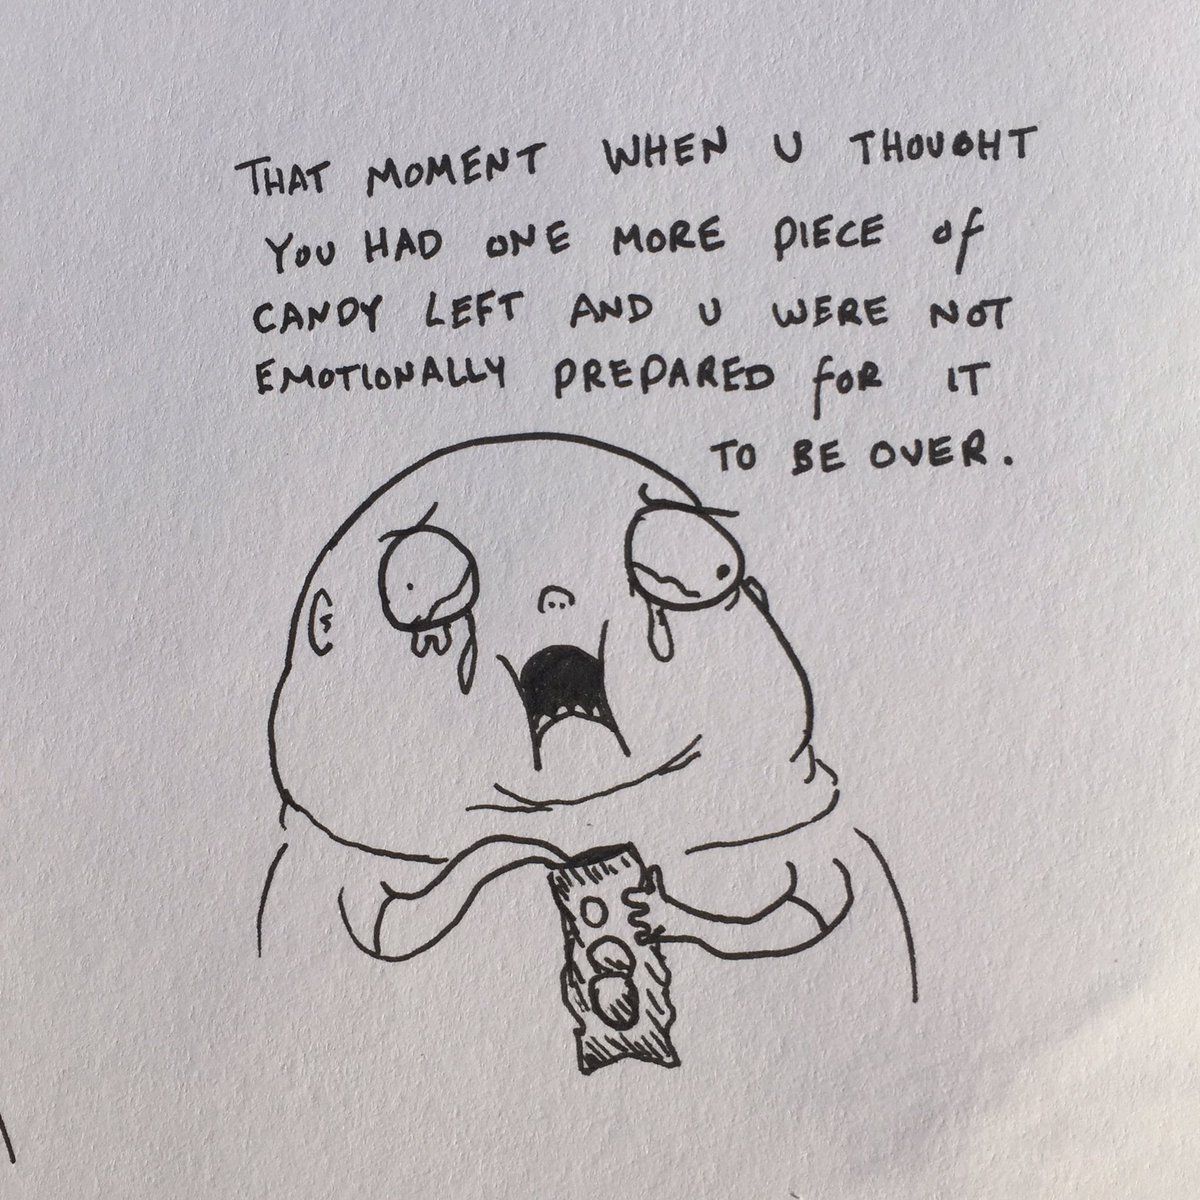 THAT MOMENT WHEN U THOUGHT
YOU HAD ONE MORE PIECE of
CANDY LEFT AND U WERE NOT
EMOTIONALLY PREPARED foR IT
TO BE OVER.